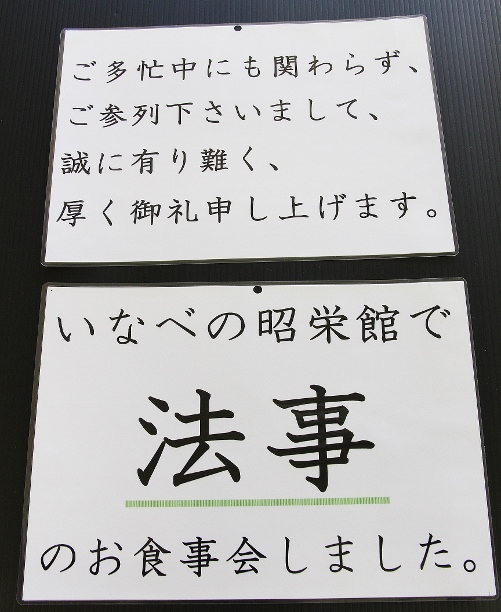 ご多忙中にも関わらず、
ご参列下さいまして、
誠に有り難く、
厚く御礼申し上げます。
いなべの昭栄館で
法事
のお食事会しました。